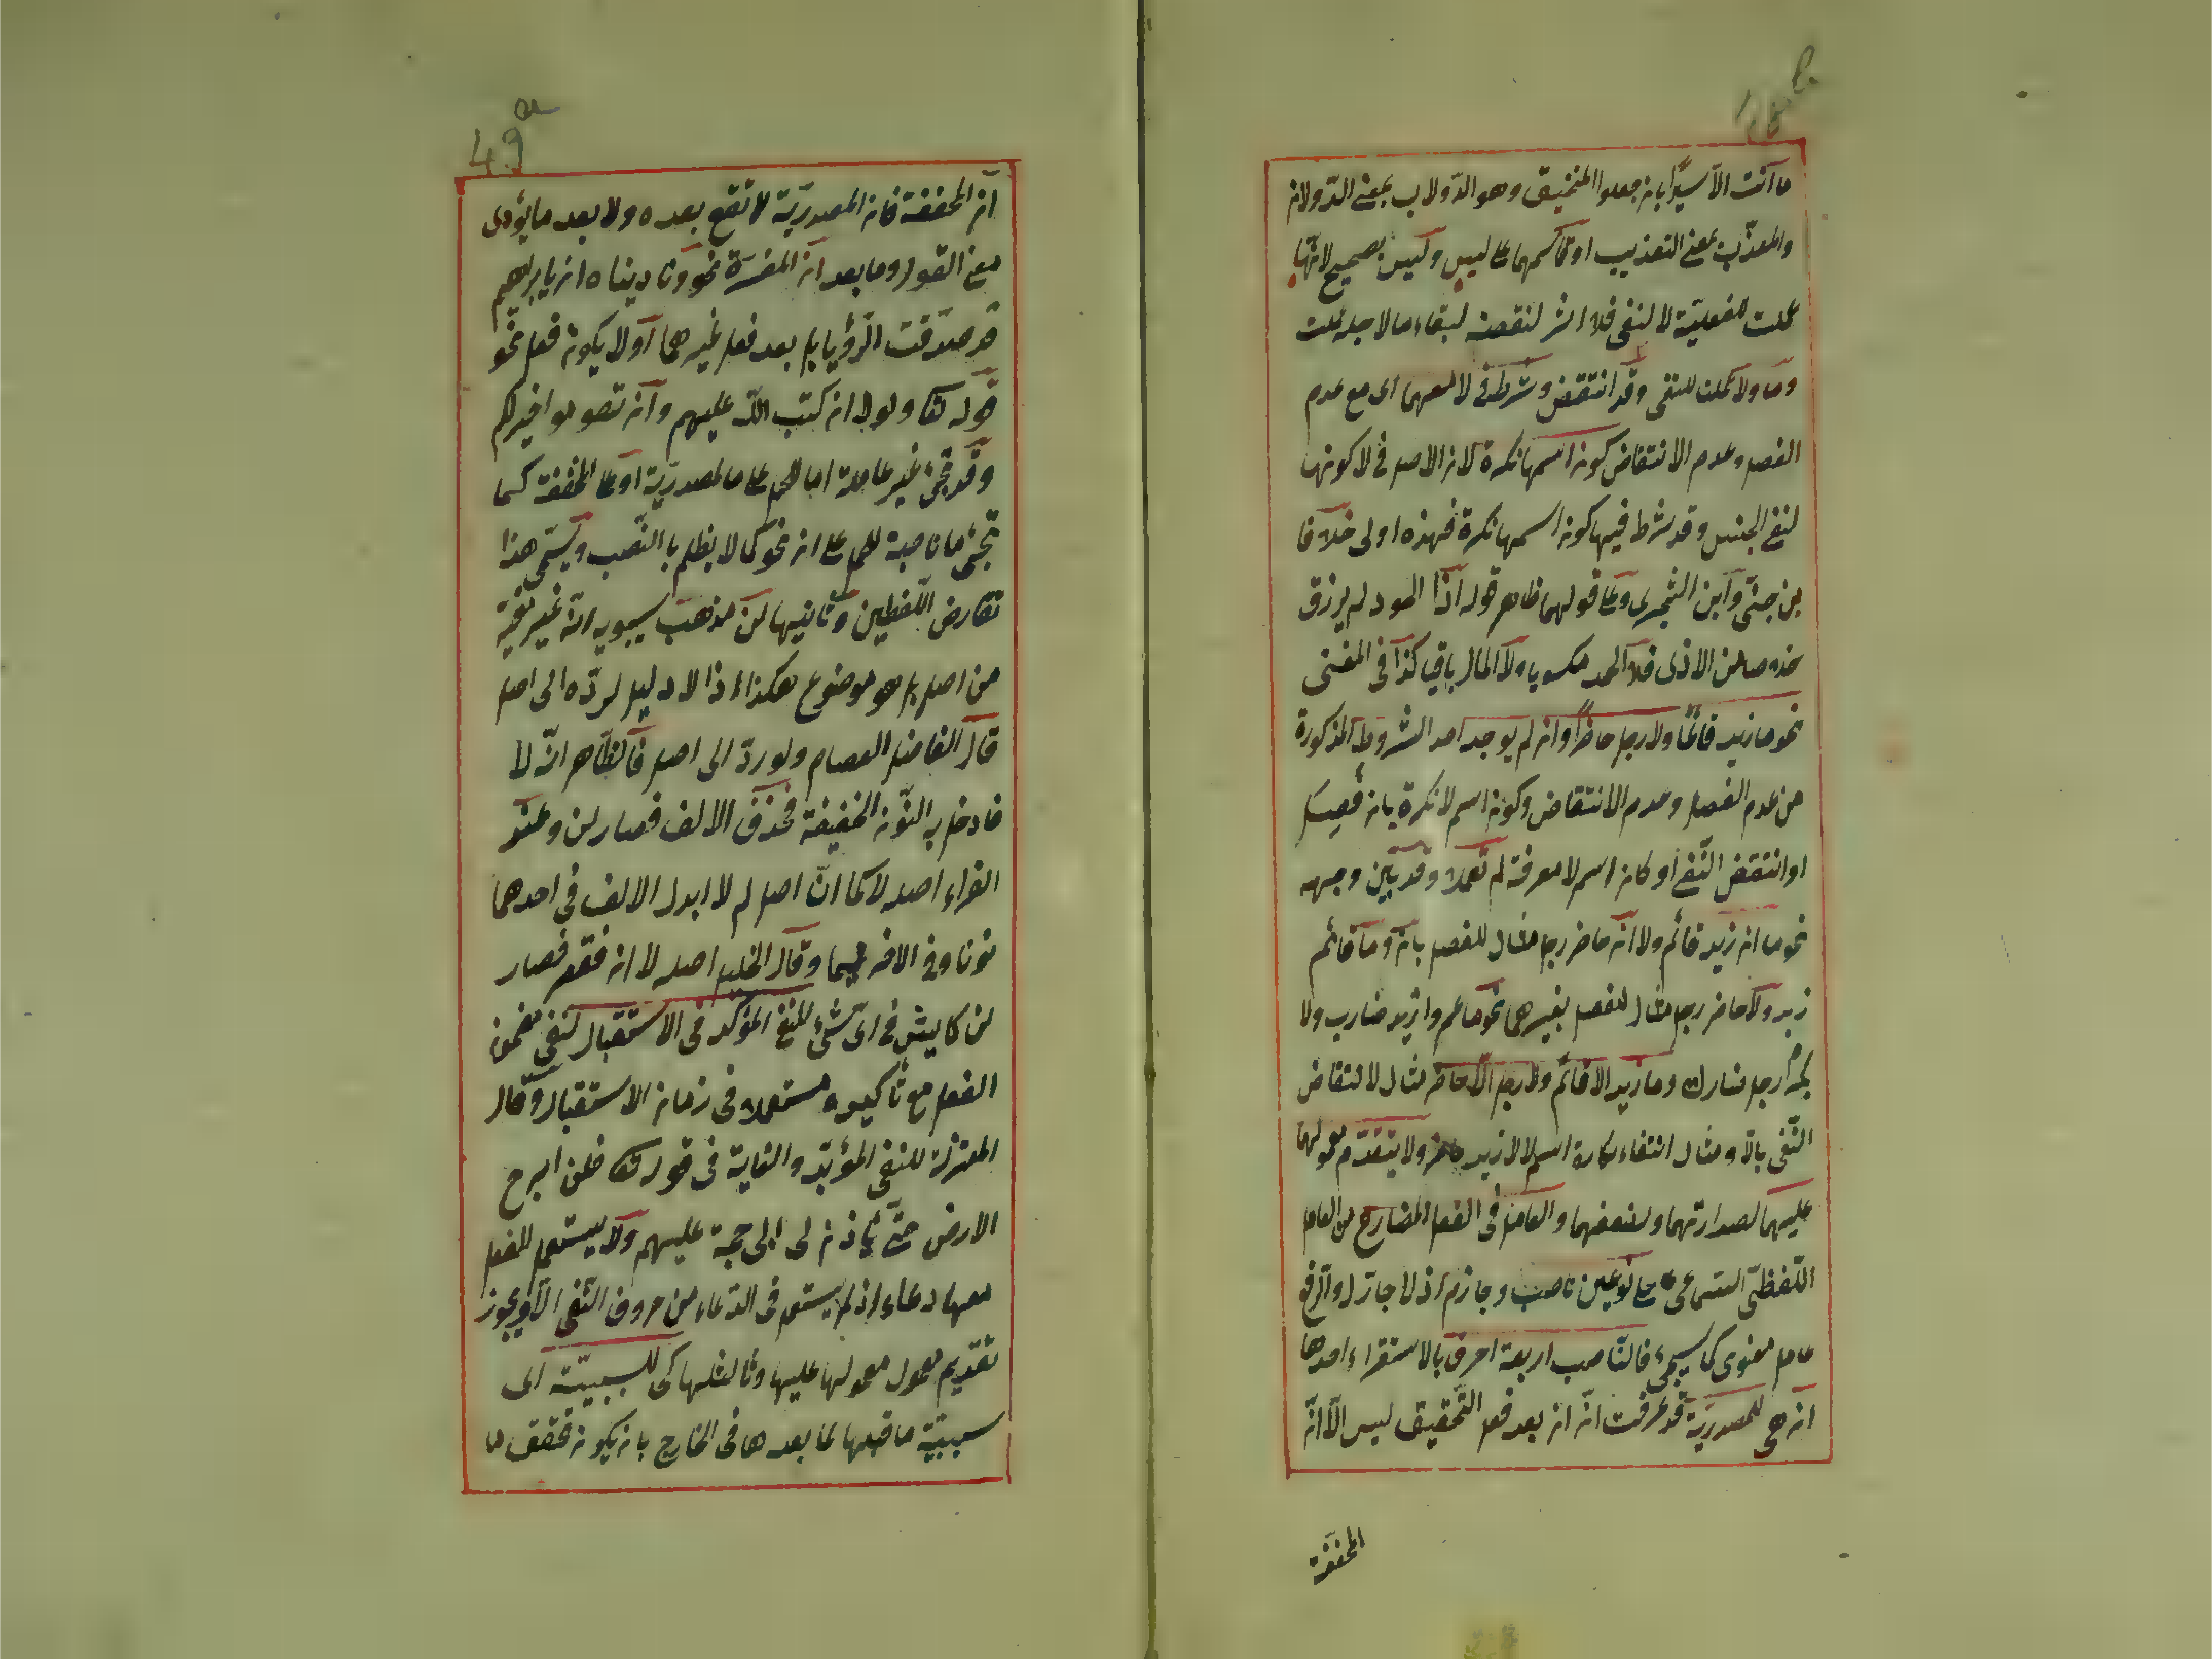 ما انت الا سيرا بان جعلوا المنجنيق وهو الدولاب بمعنى الدولان
والمعذب بمعنى التعذيب او لقياسهما على ليس وليس بصحيح لانها
عملت للفعلية لا للنفى فلا اثر لنقضه لبقاء ما لاجله عملت
وما ولا عملت للنفى وقد انتقض وشرط فى لا معهما اى مع عدم
الفصل وعدم الانتقاض كون اسمها نكرة لان الاصل فى لا كونها
لنفى الجنس وقد شرط فيها كون اسمها نكرة فهذه اولى خلافا
بن جنى وابن الشجرى وعلى قولهما ظاهر قوله اذا الجود لم يرزق
خلاصا من الاذى فلا الحمد مكسوبا ولا المال باقيا كذا فى المغنى
نحو ما زيد قائما ولا رجل حاضرا وان لم يوجد احد الشروط المذكورة
من عدم الفصل وعدم الانتقاض وكون اسم لا نكرة بان فصل
او انتقض النفى او كان اسم لا معرفة لم تعملا وقد بين وجهه
نحو ما ان زيد قائم ولا ان حاضر رجل مثال للفصل بان وما قائم
زيد ولا حاضر رجل مثال للفصل بغيرهما نحو ما عمروا زيد ضارب ولا
بكرا رجل مشارك وما زيد الا قائم ولا رجل الا حاضر مثال لانتقاض
النفى بالا ومثال انتفاء نكارة اسم لا لا زيد حاضر ولا يتقدم معمولهما
عليهما لصدارتهما ولضعفهما والعامل فى الفعل المضارع من العامل
اللفظى السماعى على نوعين ناصب وجازم اذ لا جار له والرافع
عامل معنوى كما سيجئ فالناصب اربعة احرف بالاستقراء احدها
ان هى للمصدرية قد عرفت انه ان بعد فعل التحقيق ليس الا انه
المخففة
49a
ان المخففة فان المصدرية لا تقع بعده ولا بعد ما يؤدى
معنى القول وما بعد ان المفسرة نحو وناديناه ان يا ابرهيم
قد صدقت الرؤيا بل بعد فعل غيرهما او لا يكون فعل نحو
قوله تعا ولولا ان كتب الله عليهم وان تصوموا خير لكم
وقد تجئ غير عاملة اما للحمل على ما المصدرية او على المخففة كما
تجئ ما ناصبة للحمل على ان نحو كما لا يظلم بالنصب ويسمى هذا
تقارض اللفظين وثانيها لن مذهب سيبويه انه غير مغير
من اصل بل هو موضوع هكذا اذ لا دليل لرده الى اصل
قال الفاضل العصام ولو رد الى اصل فالظاهر انه لا
فادخل به النون الخفيفة فحذف الالف فصار لن وعند
الفراء اصله لا كما ان اصل لم لا ابدل الالف فى احدهما
نونا وفى الاخر ميما وقال الخليل اصله لا ان فقصر فصار
لن كايش فى اى شئ للنفى المؤكد فى الاستقبال لنفى مضمون
الفعل مع تأكيده مستعملا فى زمان الاستقبال وقال
المعتزلة للنفى المؤبد والغاية فى قوله تعا فلن ابرح
الارض حتى يأذن لى ابى حجة عليهم ولا يستعمل الفعل
معها دعاء اذ لم يستعمل فى الدعاء من حروف النفى الا لا ويجوز
تقديم معمول معمولها عليها وثالثها كى للسببية اى
سببية ما قبلها لما بعدها فى الخارج بان يكون تحقق ما